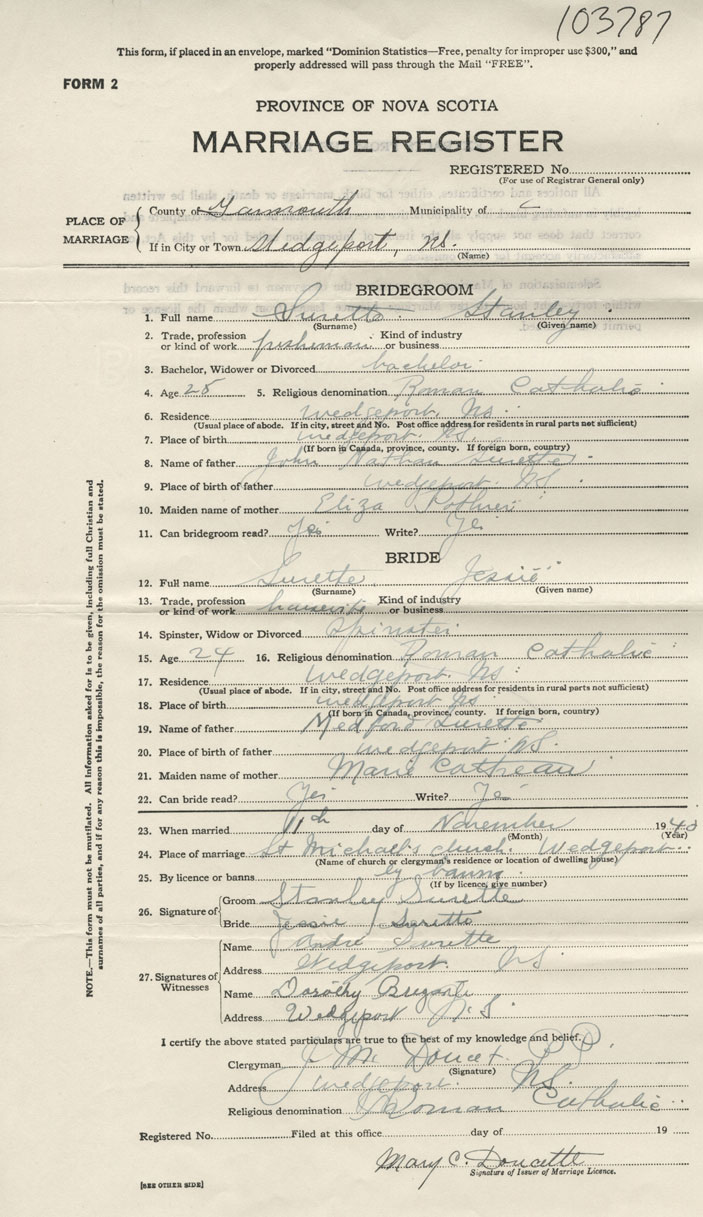 103787
This form, if placed in an envelope, marked "Dominion Statistics—Free, penalty for improper use $300," and
properly addressed will pass through the Mail "FREE".
FORM 2
PROVINCE OF NOVA SCOTIA
MARRIAGE REGISTER
REGISTERED No.
(For use of Registrar General only)
PLACE OF MARRIAGE
County of Yarmouth Municipality of
If in City or Town Wedgeport, NS.
(Name)
BRIDEGROOM
1. Full name Surette Stanley
(Surname) (Given name)
2. Trade, profession or kind of work fisherman Kind of industry or business
3. Bachelor, Widower or Divorced bachelor
4. Age 28 5. Religious denomination Roman Catholic
6. Residence Wedgeport. NS.
(Usual place of abode. If in city, street and No. Post office address for residents in rural parts not sufficient)
7. Place of birth wedgeport NS.
(If born in Canada, province, county. If foreign born, country)
8. Name of father John Nathan Surette
9. Place of birth of father wedgeport. NS
10. Maiden name of mother Eliza Pothier
11. Can bridegroom read? Yes Write? Yes
BRIDE
12. Full name Surette Jessie
(Surname) (Given name)
13. Trade, profession or kind of work Kind of industry or business
14. Spinster, Widow or Divorced Spinster
15. Age 24 16. Religious denomination Roman Catholic
17. Residence Wedgeport. NS
(Usual place of abode. If in city, street and No. Post office address for residents in rural parts not sufficient)
18. Place of birth wedgeport NS
(If born in Canada, province, county. If foreign born, country)
19. Name of father Medford Surette
20. Place of birth of father wedgeport NS.
21. Maiden name of mother Marie
22. Can bride read? Yes Write? Yes
23. When married 11th day of November 1940
(Month) (Year)
24. Place of marriage St Michael's church. Wedgeport
(Name of church or clergyman's residence or location of dwelling house)
25. By licence or banns by banns
(If by licence, give number)
26. Signature of
Groom Stanley Surette
Bride Jessie Surette
27. Signatures of Witnesses
Name André Surette
Address Wedgeport. NS
Name Dorothy
Address Wedgeport N.S.
I certify the above stated particulars are true to the best of my knowledge and belief.
Clergyman Doucet. P.P.
(Signature)
Address wedgeport. NS.
Religious denomination Roman Catholic
Registered No. Filed at this office day of 19
Mary C. Doucette
Signature of Issuer of Marriage Licence.
[SEE OTHER SIDE]
NOTE.—This form must not be mutilated. All information asked for is to be given, including full Christian and
surnames of all parties, and if for any reason this is impossible, the reason for the omission must be stated.